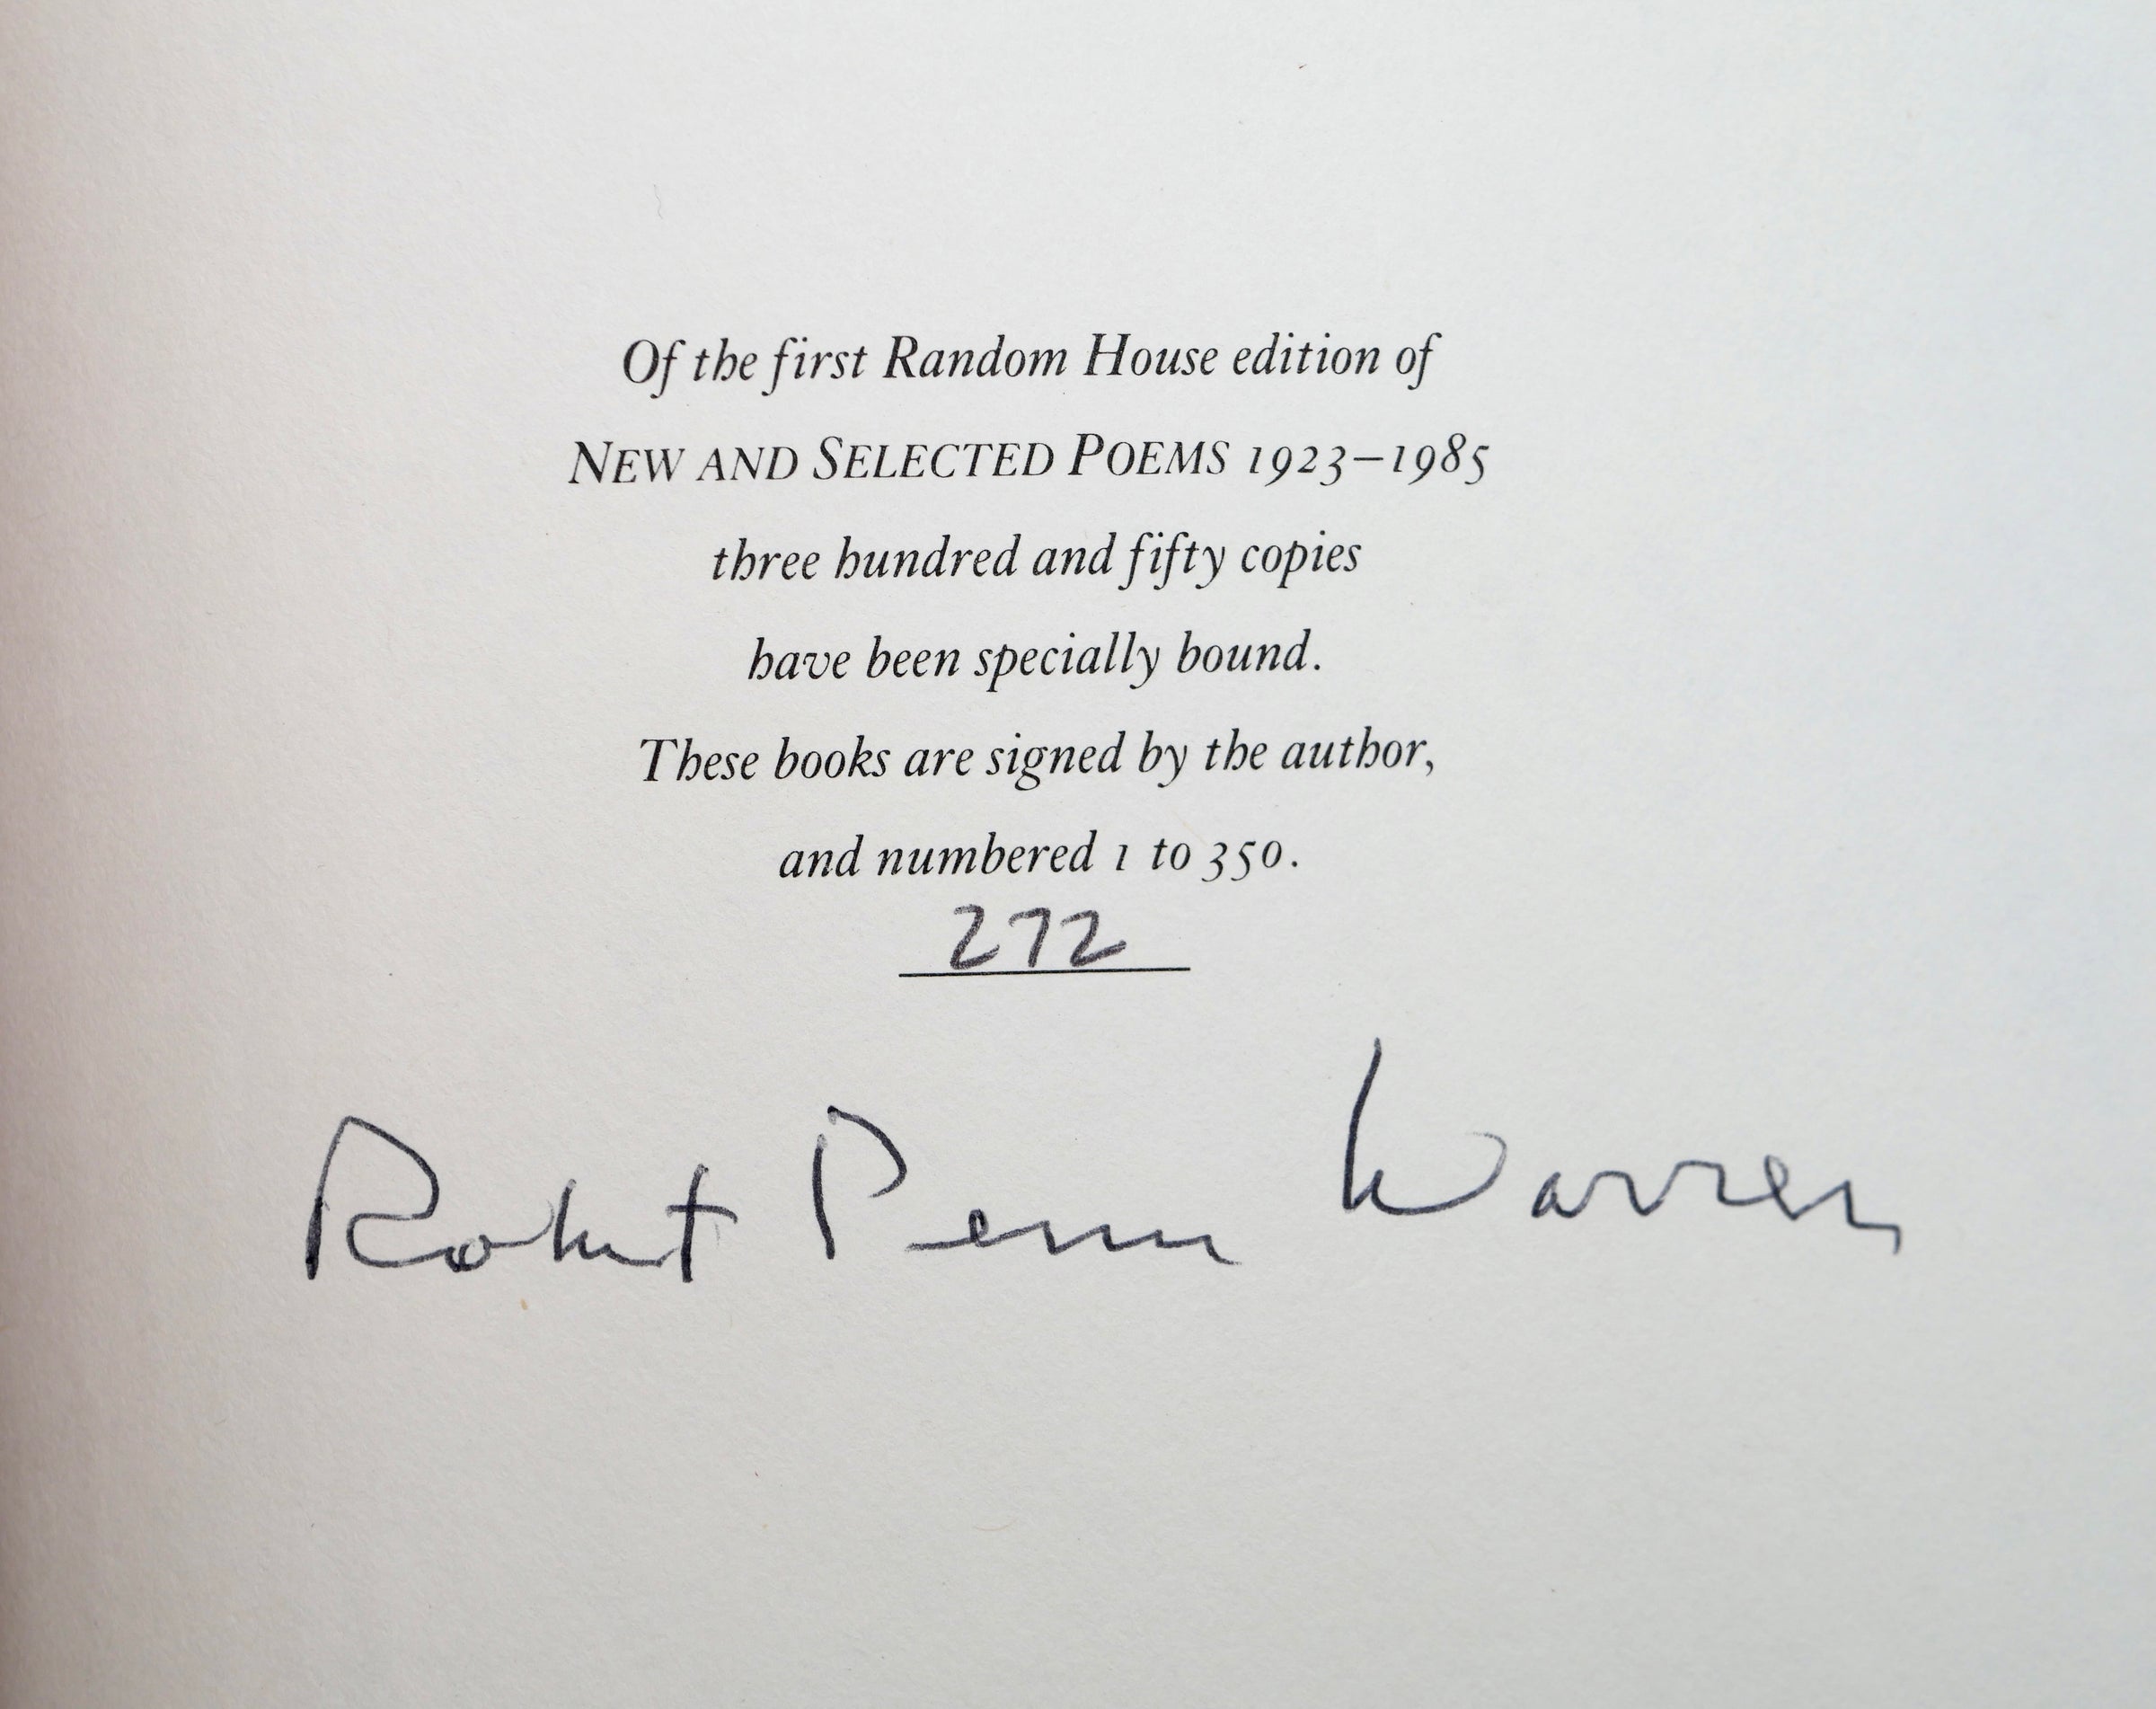 Of the first Random House edition of
NEW AND SELECTED POEMS 1923–1985
three hundred and fifty copies
have been specially bound.
These books are signed by the author,
and numbered 1 to 350.
272
Robert Penn Warren